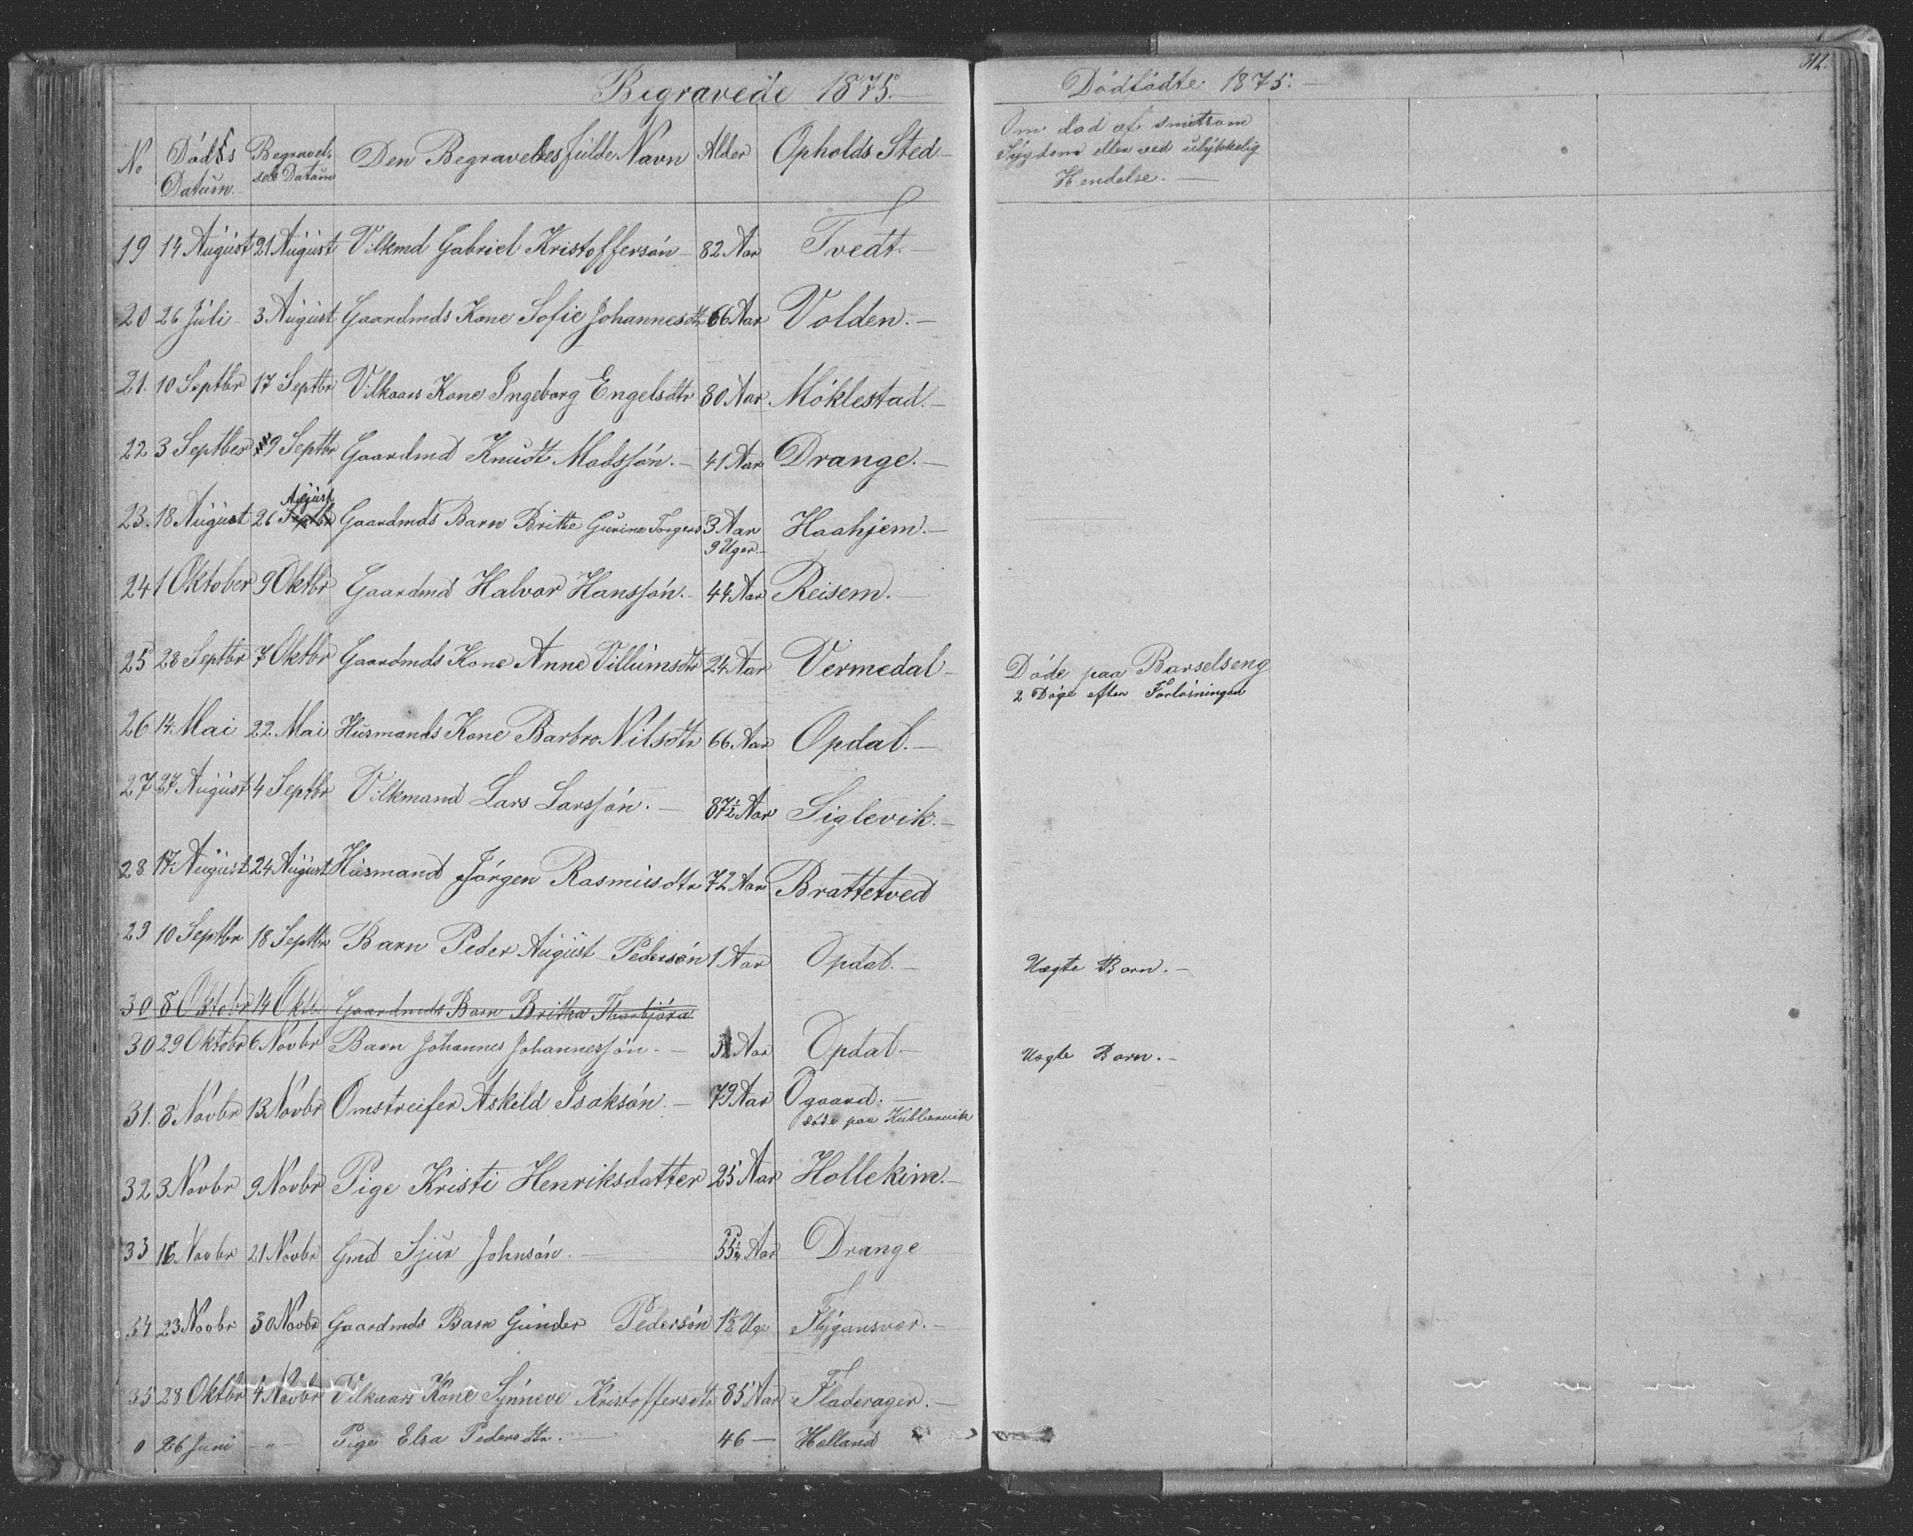 Begravede 1875.
No Dødds Datum. Begravelses Datum Den Begravedes fulde Navn Alder Opholds Sted
19 14 August 21 August Vilkmd Gabriel Kristoffersøn 82 Aar Tvedt.
20 26 Juli 3 August Gaardmds Kone Sofie Johannesdtr 66 Aar Volden.
21. 10 Septbr 17 Septbr Vilkaars Kone Ingeborg Engelsdtr 80 Aar Møklestad.
22 3 Septber 9 Septbr Gaardmd Knudt Madssøn. 41 Aar Drange.
August
23. 18 August 26 Septbr Gaardmds Barn Britte Gurine Torgers 3 Aar Haahjem.
9 Uger
24 1 Oktober 9 Oktbr Gaardmd Halvor Hanssøn. 44 Aar Reisem.
25 28 Septbr 7 Oktbr Gaardmds Kone Anne Villumsdtr 24 Aar Vermedal
26 14. Mai 22. Mai Husmands Kone Barbro Nilsdtr 66 Aar Opdal.
27 27 August 4 Septbr Vilkmand Lars Larssøn. 87½ Aar Siglevik.
28 17 August 24 August Husmand Jørgen Rasmusdtr 72 Aar Brattetved
29 10 Septbr 18 Septbr Barn Peder August Pedersøn 1 Aar Opdal.
30 8 Oktobr 14 Oktb Gaardmds Barn Britha Thorbjøra
30 29 Oktobr 6 Novbr Barn Johannes Johannessøn. Aar Opdal
31. 8 Novbr 13 Novbr Omstreifer Askild Isaksøn. 79 Aar Ogaard.
døde paa
32 3 Novbr 9 Novbr Pige Kristi Henriksdatter 25 Aar Hollekim.
33 16 Novbr 21 Novbr Gmd Sjur Johnsøn. 55 Aar Drange
34 23 Novbr 30 Novbr Gaardmds Barn Gunder Pedersøn 1½ Uge Flygansvær.
35 28 Oktbr 4 Novbr Vilkaars Kone Synneve Kristoffersdtr 85 Aar Fladerager.
0 26 Juni -"- Pige Elsa Pedersdtr. 46 Holland
312.
Dødfødte 1875.
Om død af smitsom
Sygdom eller ved ulykkelig
Hendelse.
Døde paa Barselseng
2 Døge efter Forløsningen
Uægte Barn.
Uægte Barn.